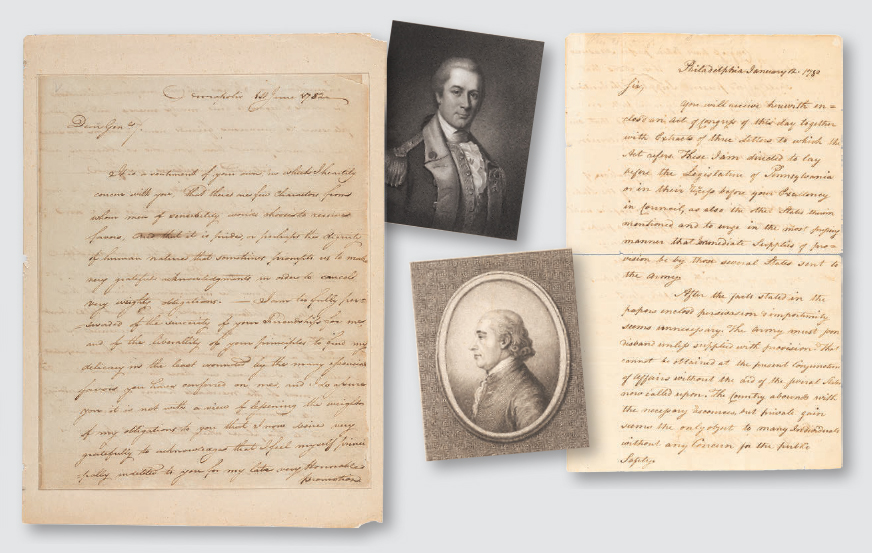 June 178
Dear Gen.
It is a sentiment of your own in which I heartily
concur with you. That there are few characters from
whom men of sensibility would choose to receive
favors, and that it is pride, or perhaps the dignity
of human nature that sometimes prompts us to make
very grateful acknowledgments in order to cancel
very weighty obligations. — I am so fully per=
swaded of the sincerity of your Friendship for me
and of the liberallity of your Principles to find my
delicacy in the least wounded by the many essential
favors you have conferred on me, and I do assure
you it is not with a view of lessening the weight
of my obligations to you that I now desire very
gratefully to acknowledge that I feel myself prin
cipally indebted to you for my late very Honorable
promotion
Philadelphia January 12. 1780
Sir,
You will receive herewith en=
closed an Act of Congress of this day together
with Extracts of three Letters to which the
Act refers. These I am directed to lay
before the Legislature of Pennsylvania
or in their Recess before your Excellency
in Council, as also the other States therein
mentioned and to urge in the most pressing
manner that immediate Supplies of pro=
vision be by those several States sent to
the Army.
After the facts stated in the
papers enclosed perswasion & importunity
seems unnecessary. The Army must soon
disband unless supplied with provision. That
cannot be obtained at the present Conjuncture
of Affairs without the aid of the several States
now called upon. The Country abounds with
the necessary resources, but private gain
seems the only object to many Individuals
without any Concern for the public
Safety.